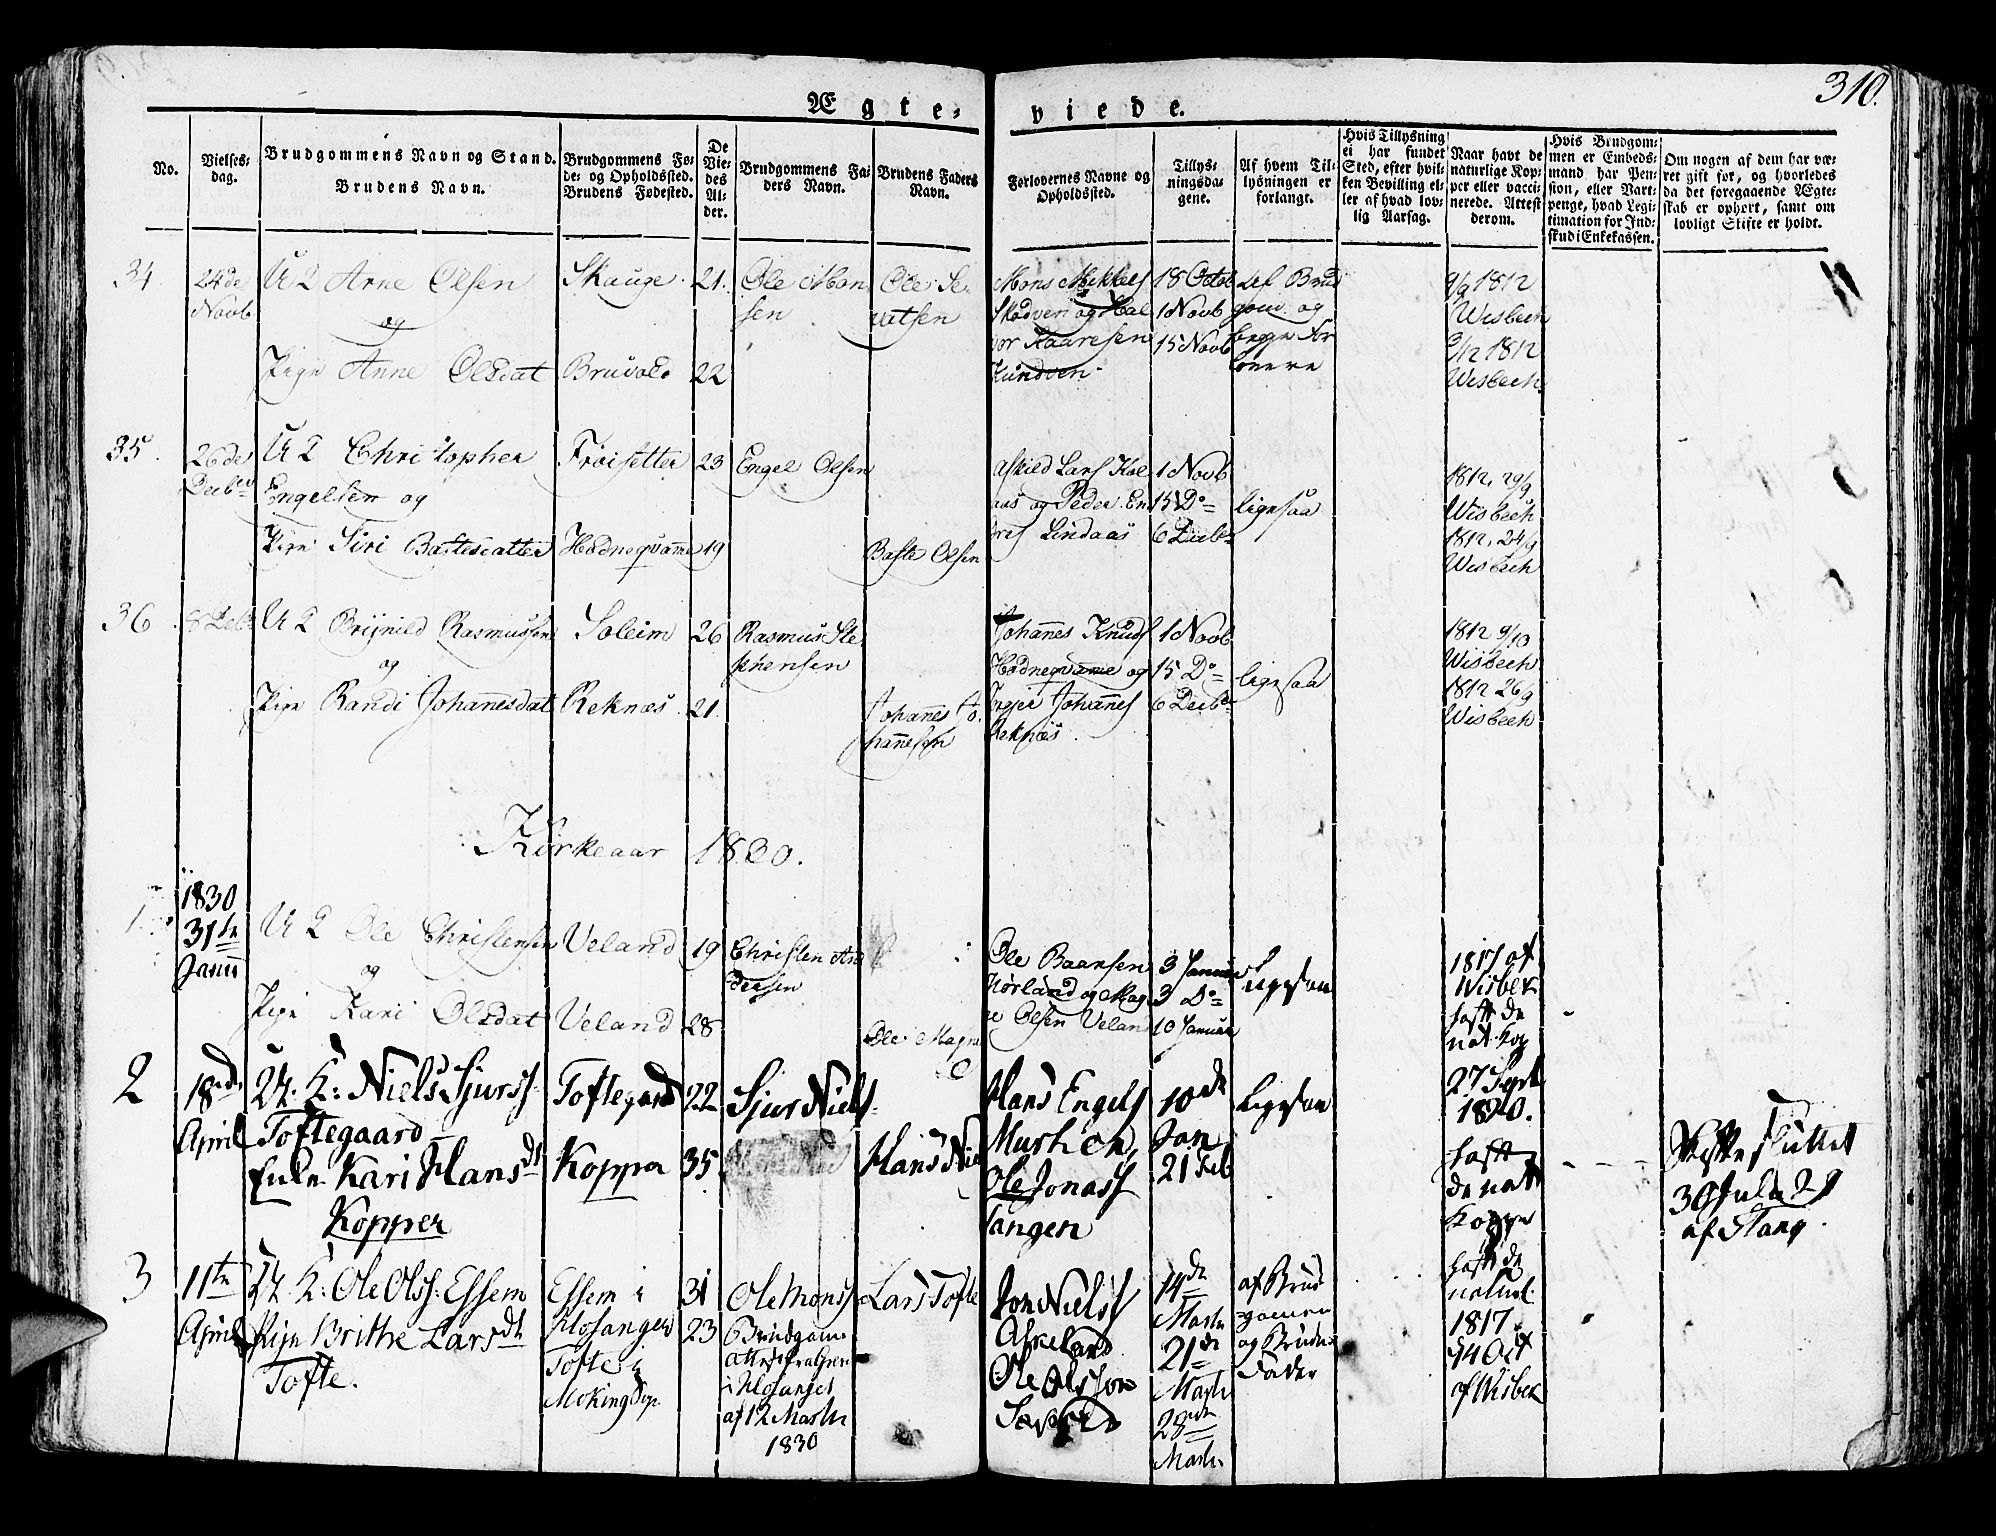 310.
Ægte-viede.
No.
Vielses-dag.
Brudgommens Navn og Stand.
Brudens Navn.
Brudgommens Fø-
de- og Opholdssted.
Brudens Fødested.
De
Vie-
des
Al-
der.
Brudgommens Fa-
ders Navn.
Brudens Faders
Navn.
Forlovernes Navne og
Opholdssted.
Tillys-
ningsda-
gene.
Af hvem Til-
lysningen er
forlangt.
Hvis Tillysning
ei har fundet
Sted, efter hvil-
ken Bevilling el-
ler af hvad lov-
lig Aarsag.
Naar havt de
naturlige Kop-
per eller vacci-
nerede. Attest
derom.
Hvis Brudgom-
men er Embeds-
mand har Pen-
sion, eller Vart-
penge, hvad Legi-
timation for Ind-
skud i Enkekassen.
Om nogen af dem har væ-
ret gift før, og hvorledes
da det foregaaende Ægte-
skab er ophørt, samt om
lovligt Skifte er holdt.
34.
24de
Novb
Arne Olsen
og
Pige Anne Olsdat
Skauge
Bruvold
21.
22
Ole Mon
sen
Ole Se
vatsen
Mons Mikkels
Skodven og Hal
vor Kaaresen
18 Octob
1 Novb
15 Novb
Brud
gom og
begge For
lovere
9/9 1812
Wisbech
1812
Wisbech
35.
26de
Decbr
Christopher
Engelsen og
Pige Siri Bastesdatter
Froisetter
Hodneqvame
23
19
Engel Olsen
Baste Olsen
Askild Lars Kol
aas og Peder En
Lindaas
1 Novb
15 Do
6 Decbr
ligesaa
1812, 29/9
Wisbech
1812, 24/9
Wisbech
36
Brynild Rasmussen
og
Pige Randi Johannesdat
Soleim
Reknæs
26
21.
Rasmus Ste
phensen
Johannes Jo
hannesen
Johannes Knuds
Hodneqvame og
Johannes
Reknæs
1 Novb
15 Do
6 Decbr
ligesaa
1812 9/10
Wisbech
1812 26/9
Wisbech
Kirkeaar 1830.
1
1830
31te
Janu
Ole Christensen
og
Pige Kari Olsdat
Veland
Veland
19
28
Christen An
dersen
Ole Magne
Ole Baarsen
Hørland og Mag
ne Olsen Veland
3 Januar
3 Do
10 Januar
Ligesaa
1817 af
Wisbek
hafte de
nat. Kop
2
18de
April
U. K: Niels Sjurss.
Toftegaard
Enke Kari Hansdt
Kopper
Toftegard
Kopper
22
35
Sjur Niels
Hans Niel
Hans Engels
Murhen,
Ole Jonass
Tangen
10de
Jan
21 Feb
Ligesaa
27 Sept
1820.
hafte
de nat
Koppe
Skifte sluttet
30 Jula 29
af Stang.
3
11te
April
U. K: Ole Olss: Essem
Pige Brithe Larsdt
Tofte.
Essem i
Hosanger
Tofte i
31
23
Ole Monss
Brudgom
att: fra
i Hosanger
af 12 Marts
1830
Lars Tofte
Jon Nielss
Askeland
Ole Olsson
14de
Marts
21de
Marts
28de
Marts
af Brud
gomen
og Brudens
Fader
hafte de
naturl.
1817.
14 Oct
af Wisbek